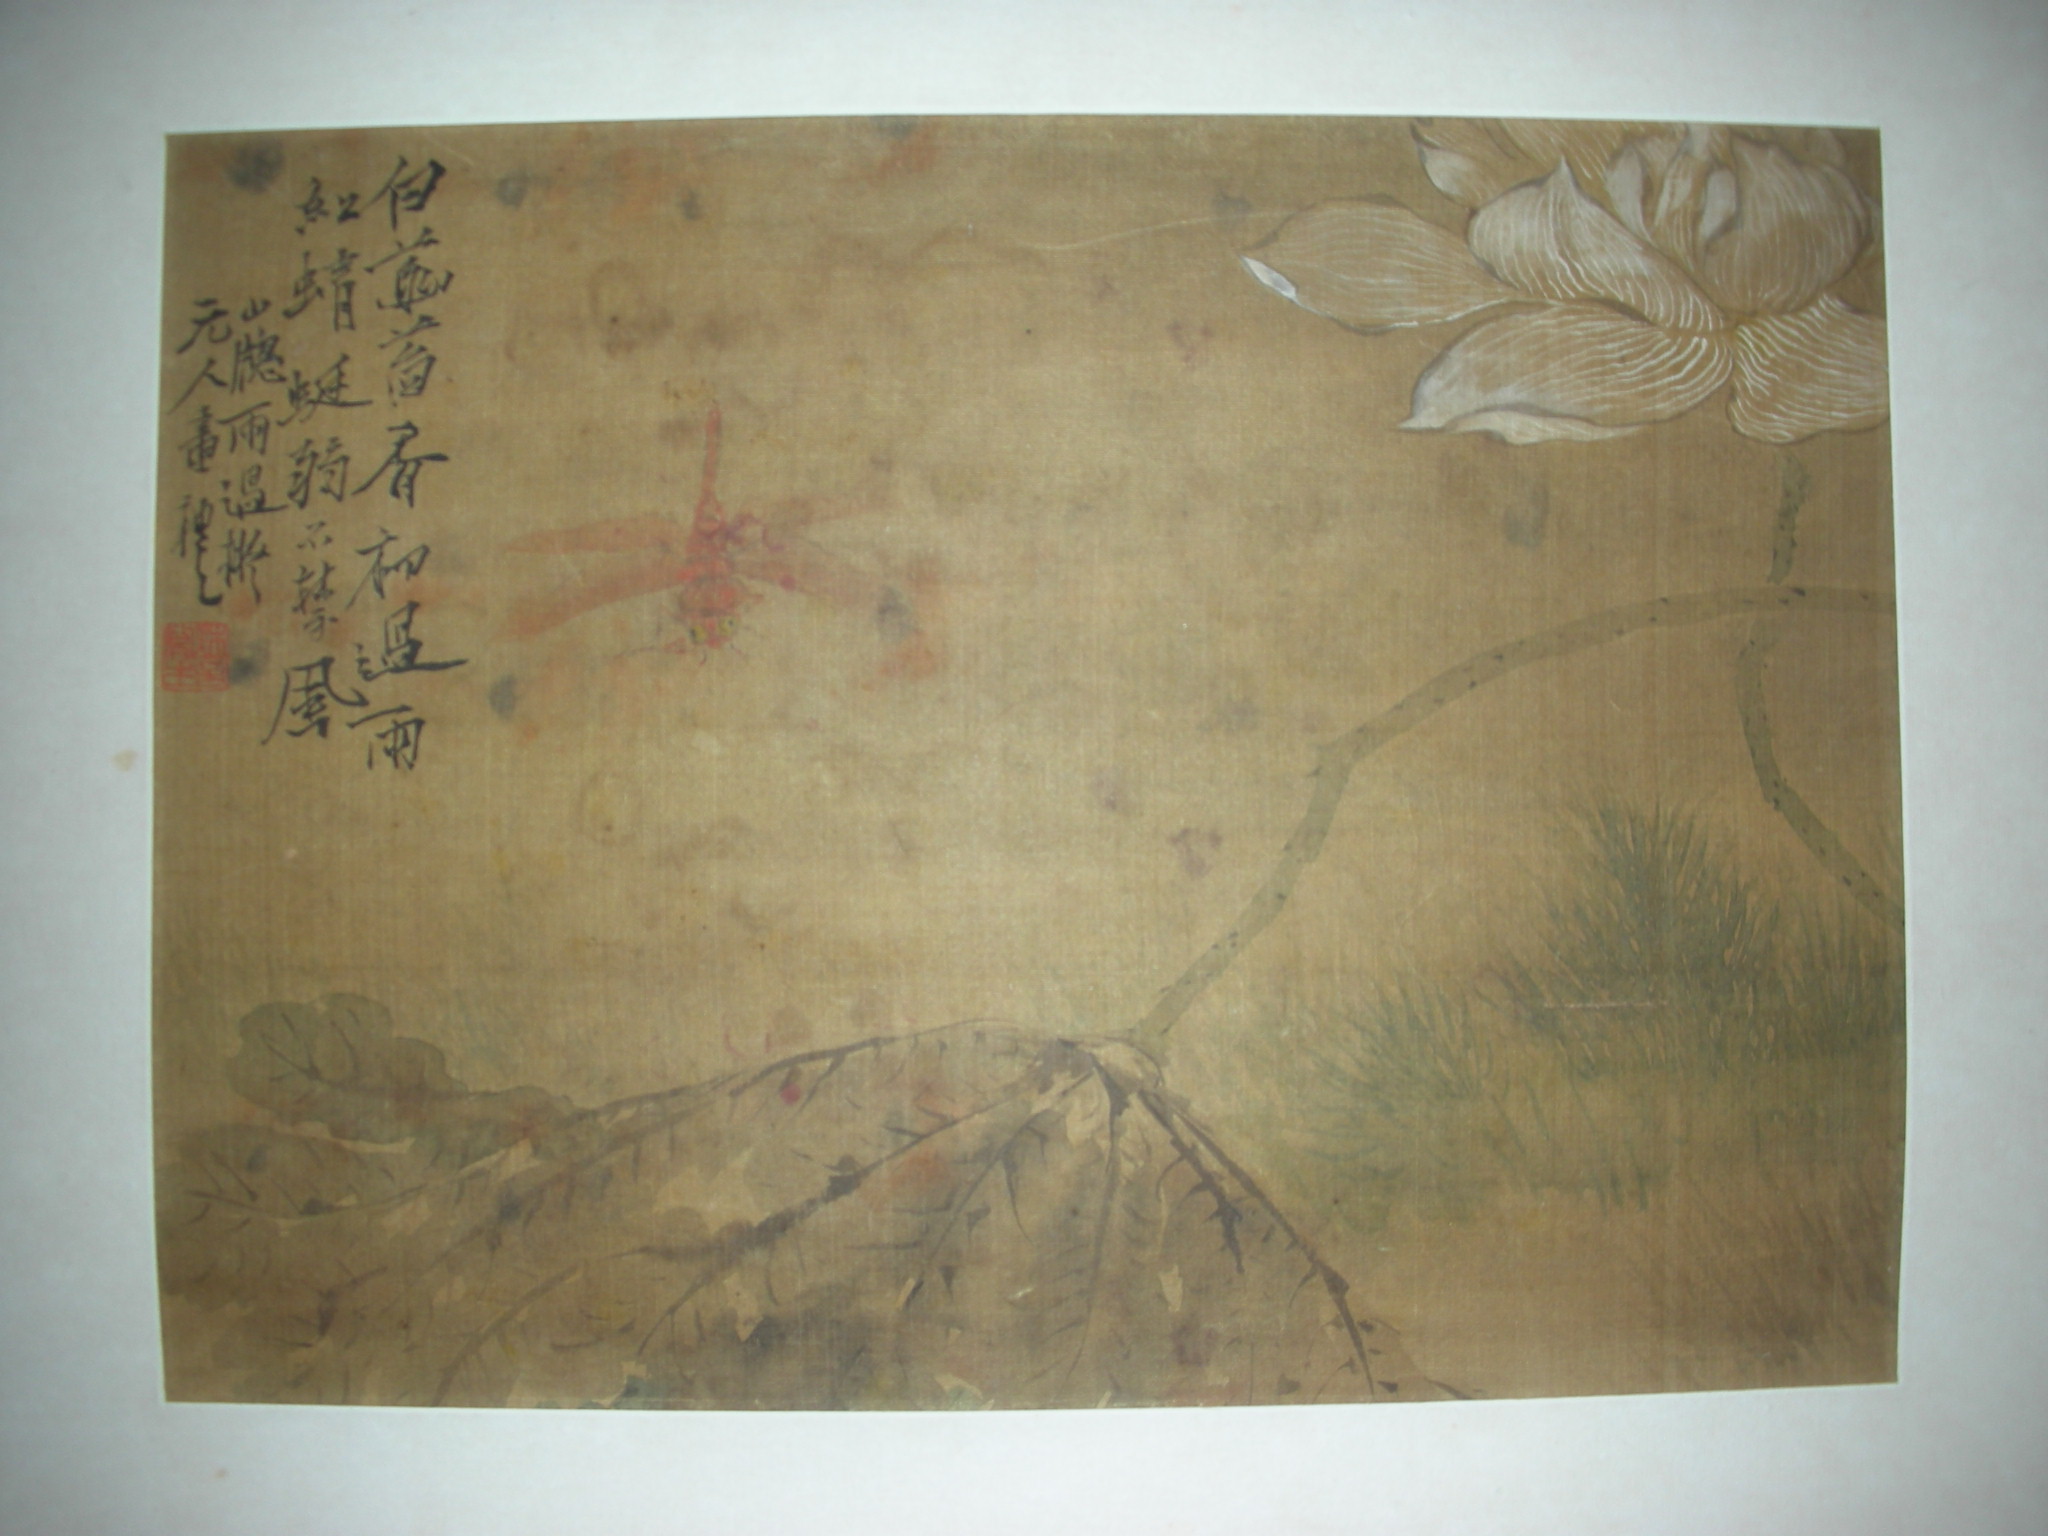 白菡萏香初過雨
紅蜻蜓弱不禁風
山牕雨過擬
元人畫